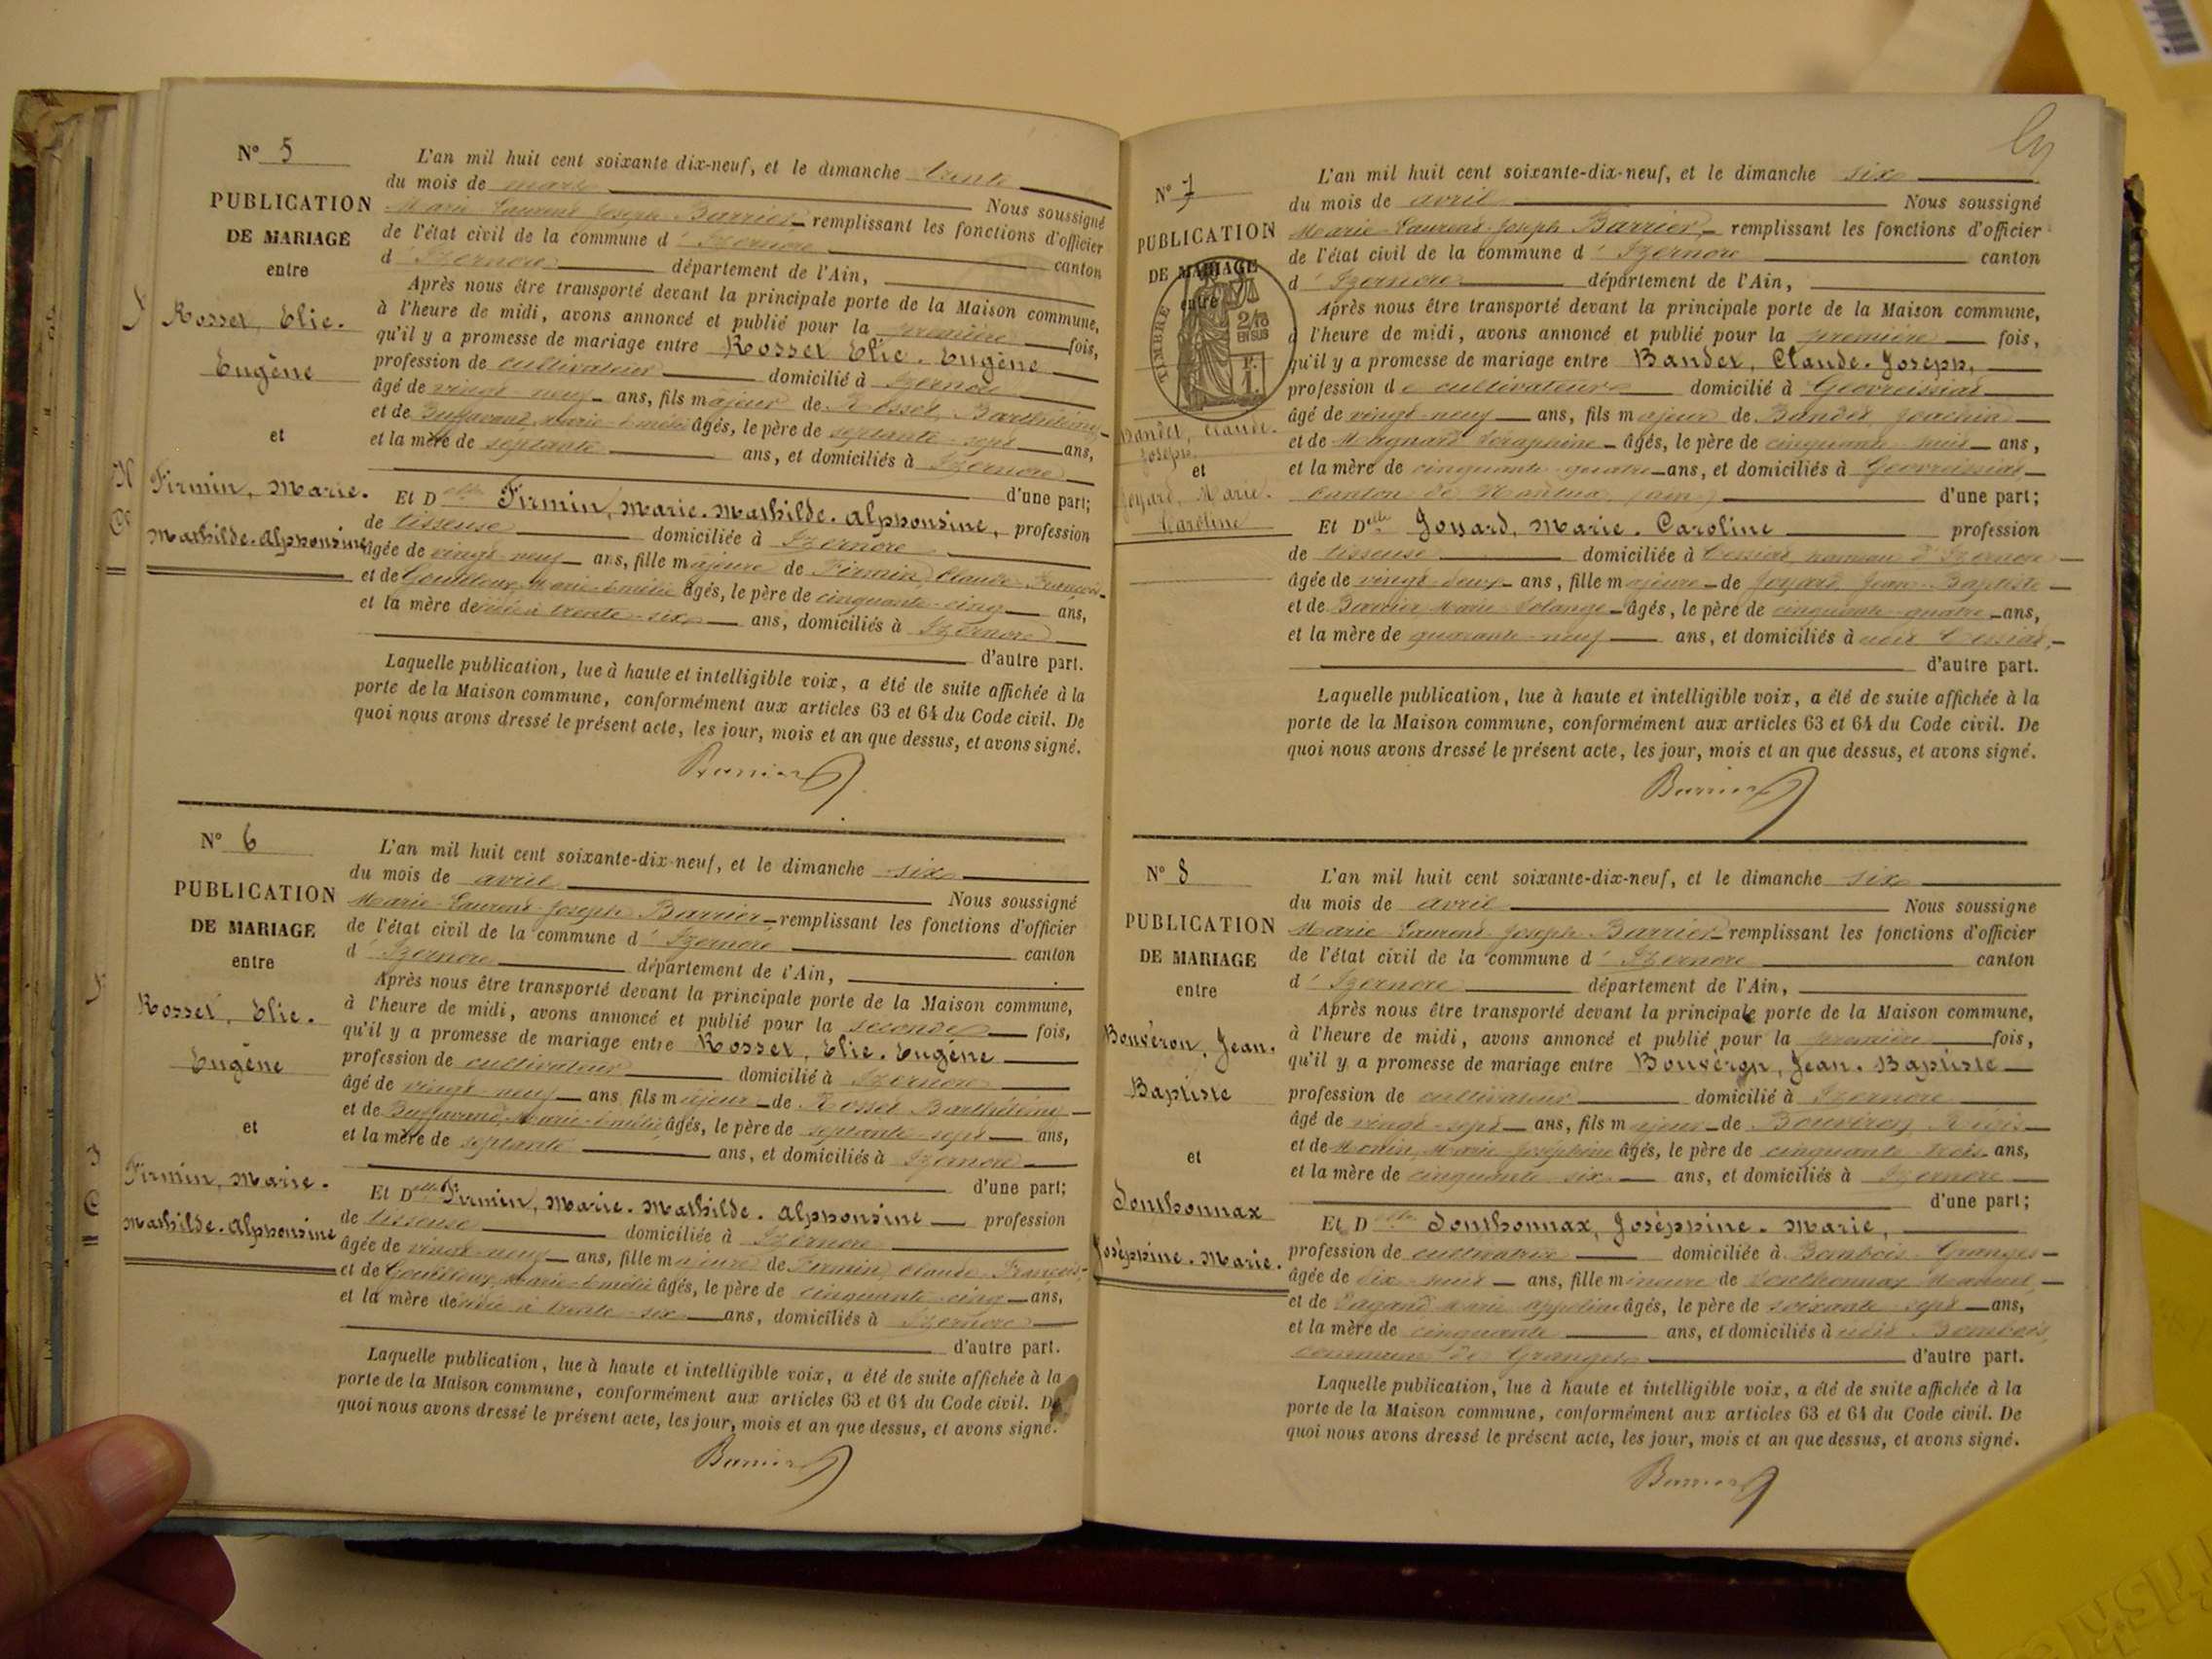 N° 5
PUBLICATION
DE MARIAGE
entre
Rosset, Elie.
Eugène
et
Firmin, Marie.
Mathilde. Alphonsine
L'an mil huit cent soixante dix-neuf, et le dimanche trente
du mois de mars Nous soussigné
Marie Laurent Joseph Barrier remplissant les fonctions d'officier
de l'état civil de la commune d' Izernore canton
d' Izernore département de l'Ain,
Après nous être transporté devant la principale porte de la Maison commune,
à l'heure de midi, avons annoncé et publié pour la première fois,
qu'il y a promesse de mariage entre Rosset Elie. Eugène
profession de cultivateur domicilié à Izernore
âgé de vingt-neuf ans, fils majeur de Rosset, Barthélemy
et de Buffavand, Marie-Emélie âgés, le père de septante-sept ans,
et la mère de septante ans, et domiciliés à Izernore
d'une part;
Et Delle Firmin, Marie. Mathilde. Alphonsine, profession
de tisseuse domiciliée à Izernore
âgée de vingt-neuf ans, fille majeure de Firmin, Claude-François
et de Gouilloux, Marie-Emélie âgés, le père de cinquante-cinq ans,
et la mère décédée à trente-six ans, domiciliés à Izernore
d'autre part.
Laquelle publication, lue à haute et intelligible voix, a été de suite affichée à la
porte de la Maison commune, conformément aux articles 63 et 64 du Code civil. De
quoi nous avons dressé le présent acte, les jour, mois et an que dessus, et avons signé.
Barrier
N° 6
PUBLICATION
DE MARIAGE
entre
Rosset, Elie.
Eugène
et
Firmin, Marie.
Mathilde. Alphonsine
L'an mil huit cent soixante-dix-neuf, et le dimanche six
du mois de avril Nous soussigné
Marie-Laurent-Joseph Barrier remplissant les fonctions d'officier
de l'état civil de la commune d' Izernore canton
d' Izernore département de l'Ain,
Après nous être transporté devant la principale porte de la Maison commune,
à l'heure de midi, avons annoncé et publié pour la seconde fois,
qu'il y a promesse de mariage entre Rosset, Elie. Eugène
profession de cultivateur domicilié à Izernore
âgé de vingt-neuf ans fils majeur de Rosset Barthélemy
et de Buffavand, Marie-Emélie âgés, le père de septante-sept ans,
et la mère de septante ans, et domiciliés à Izernore
d'une part;
Et Delle Firmin, Marie. Mathilde. Alphonsine profession
de tisseuse domiciliée à Izernore
âgée de vingt-neuf ans, fille majeure de Firmin, Claude-François
et de Gouilloux, Marie-Emélie âgés, le père de cinquante-cinq ans,
et la mère décédée à trente-six ans, domiciliés à Izernore
d'autre part.
Laquelle publication, lue à haute et intelligible voix, a été de suite affichée à la
porte de la Maison commune, conformément aux articles 63 et 64 du Code civil. De
quoi nous avons dressé le présent acte, les jour, mois et an que dessus, et avons signé.
Barrier
N° 7
PUBLICATION
DE MARIAGE
entre
TIMBRE
2/10
EN SUS
Bandet, Claude.
Joseph
et
Joyard, Marie.
Caroline
L'an mil huit cent soixante-dix-neuf, et le dimanche six
du mois de avril Nous soussigné
Marie-Laurent-Joseph Barrier, remplissant les fonctions d'officier
de l'état civil de la commune d' Izernore canton
d' Izernore département de l'Ain,
Après nous être transporté devant la principale porte de la Maison commune,
à l'heure de midi, avons annoncé et publié pour la première fois,
qu'il y a promesse de mariage entre Bandet, Claude. Joseph,
profession de cultivateur domicilié à Geovreissiat
âgé de vingt-neuf ans, fils majeur de Bandet Joachim
et de Séraphine âgés, le père de cinquante-huit ans,
et la mère de cinquante-quatre ans, et domiciliés à Geovreissiat,
canton de Nantua (Ain) d'une part;
Et Delle Joyard, Marie. Caroline profession
de tisseuse domiciliée à Tessiat, hameau d'Izernore
âgée de vingt-deux ans, fille majeure de Joyard, Jean-Baptiste
et de Barrier Marie Solange âgés, le père de cinquante-quatre ans,
et la mère de quarante-neuf ans, et domiciliés à
d'autre part.
Laquelle publication, lue à haute et intelligible voix, a été de suite affichée à la
porte de la Maison commune, conformément aux articles 63 et 64 du Code civil. De
quoi nous avons dressé le présent acte, les jour, mois et an que dessus, et avons signé.
Barrier
N° 8
PUBLICATION
DE MARIAGE
entre
Bouvéron, Jean.
Baptiste
et
Donthonnax
Joséphine. Marie.
L'an mil huit cent soixante-dix-neuf, et le dimanche six
du mois de avril Nous soussigné
Marie-Laurent-Joseph Barrier remplissant les fonctions d'officier
de l'état civil de la commune d' Izernore canton
d' Izernore département de l'Ain,
Après nous être transporté devant la principale porte de la Maison commune,
à l'heure de midi, avons annoncé et publié pour la première fois,
qu'il y a promesse de mariage entre Bouvéron, Jean. Baptiste
profession de cultivateur domicilié à Izernore
âgé de vingt-sept ans, fils majeur de Bouvéron, Régis
et de Monin, Marie Joséphine âgés, le père de cinquante-trois ans,
et la mère de cinquante-six ans, et domiciliés à Izernore
d'une part;
Et Delle Donthonnax, Joséphine. Marie,
profession de cultivatrice domiciliée à Bombois Granges
âgée de dix-huit ans, fille mineure de Donthonnax
et de Marie Appoline âgés, le père de soixante-sept ans,
et la mère de cinquante ans, et domiciliés à udit Bombois,
commune de Granges d'autre part.
Laquelle publication, lue à haute et intelligible voix, a été de suite affichée à la
porte de la Maison commune, conformément aux articles 63 et 64 du Code civil. De
quoi nous avons dressé le présent acte, les jour, mois et an que dessus, et avons signé.
Barrier